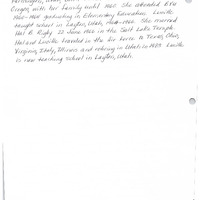 Oregon, with her family until 1960. She attended BYU
1960-1965 graduating in Elementary Education. Lucille
taught school in Layton, Utah, She married
Hal B Rigby 22 June 1966 in the Salt Lake Temple.
Hal and Lucille traveled in the Air Force to Texas, Ohio,
Virginia, Italy, Illinois and retiring in Utah in 1983. Lucille
is now teaching school in Layton, Utah.